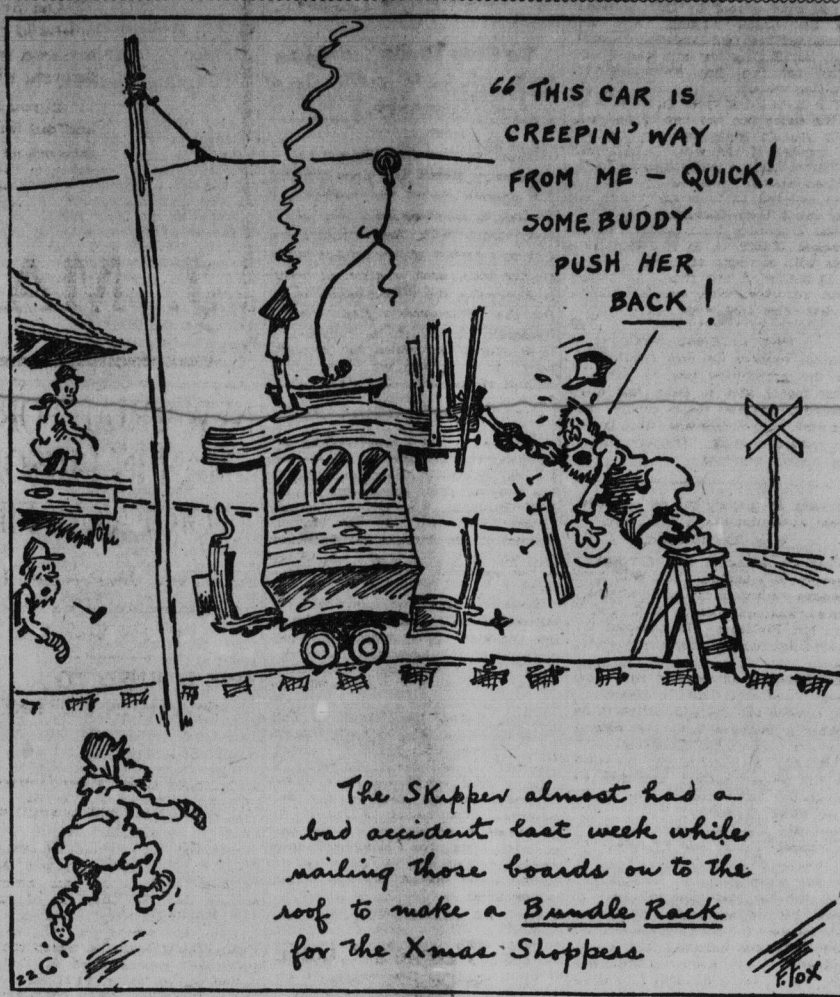 “ THIS CAR IS
CREEPIN' WAY
FROM ME — QUICK!
SOMEBUDDY
PUSH HER
BACK!
The Skipper almost had a
bad accident last week while
nailing those boards on to the
roof to make a Bundle Rack
for the Xmas Shoppers
22G
F. FOX